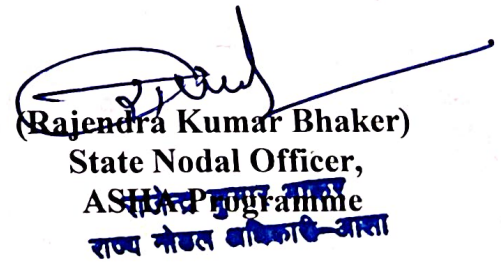 (Rajendra Kumar Bhaker)
State Nodal Officer,
ASHA Programme
राजेन्द्र कुमार भाकर
राज्य नोडल अधिकारी-आशा